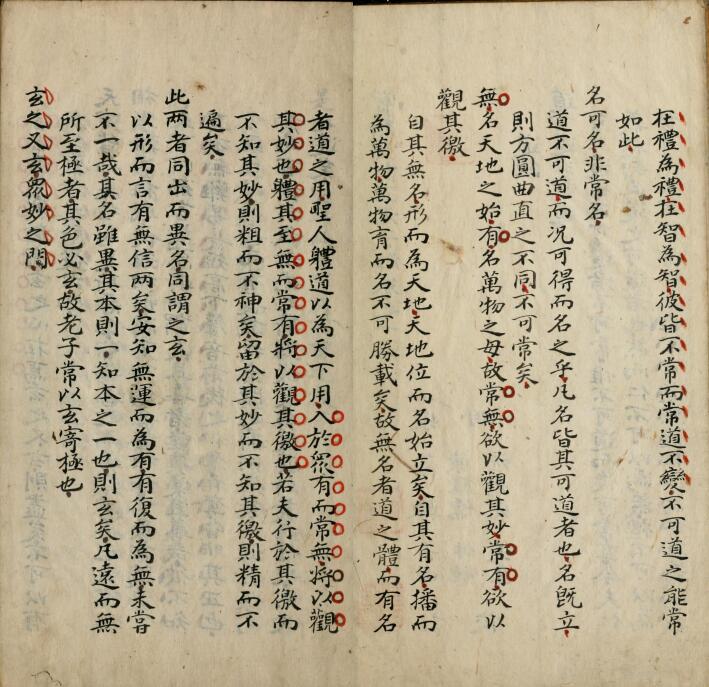 在禮為禮在智為智彼皆不常而常道不變不可道之能常
如此
名可名非常名
道不可道而况可得而名之乎凡名皆其可道者也名既立
則方圓曲直之不同不可常矣
無名天地之始有名萬物之母故常無欲以觀其妙常有欲以
觀其徼
自其無名形而為天地天地位而名始立矣自其有名播而
為萬物萬物育而名不可勝載矣故無名者道之體而有名
者道之用聖人體道以為天下用入於眾有而常無將以觀
其妙也體其至無而常有將以觀其徼也若夫行於其徼而
不知其妙則粗而不神矣留於其妙而不知其徼則精而不
遍矣
此两者同出而異名同謂之玄
以形而言有無信两矣安知無運而為有有復而為無未嘗
不一哉其名雖異其本則一知本之一也則玄矣凡遠而無
所至極者其色必玄故老子常以玄寄極也
玄之又玄眾妙之門